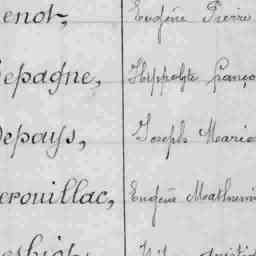 enot, Eugène Pierre
epagne, Hippolyte Franço
Depays, Joseph Marie
erouillac, Eugène Mathurin